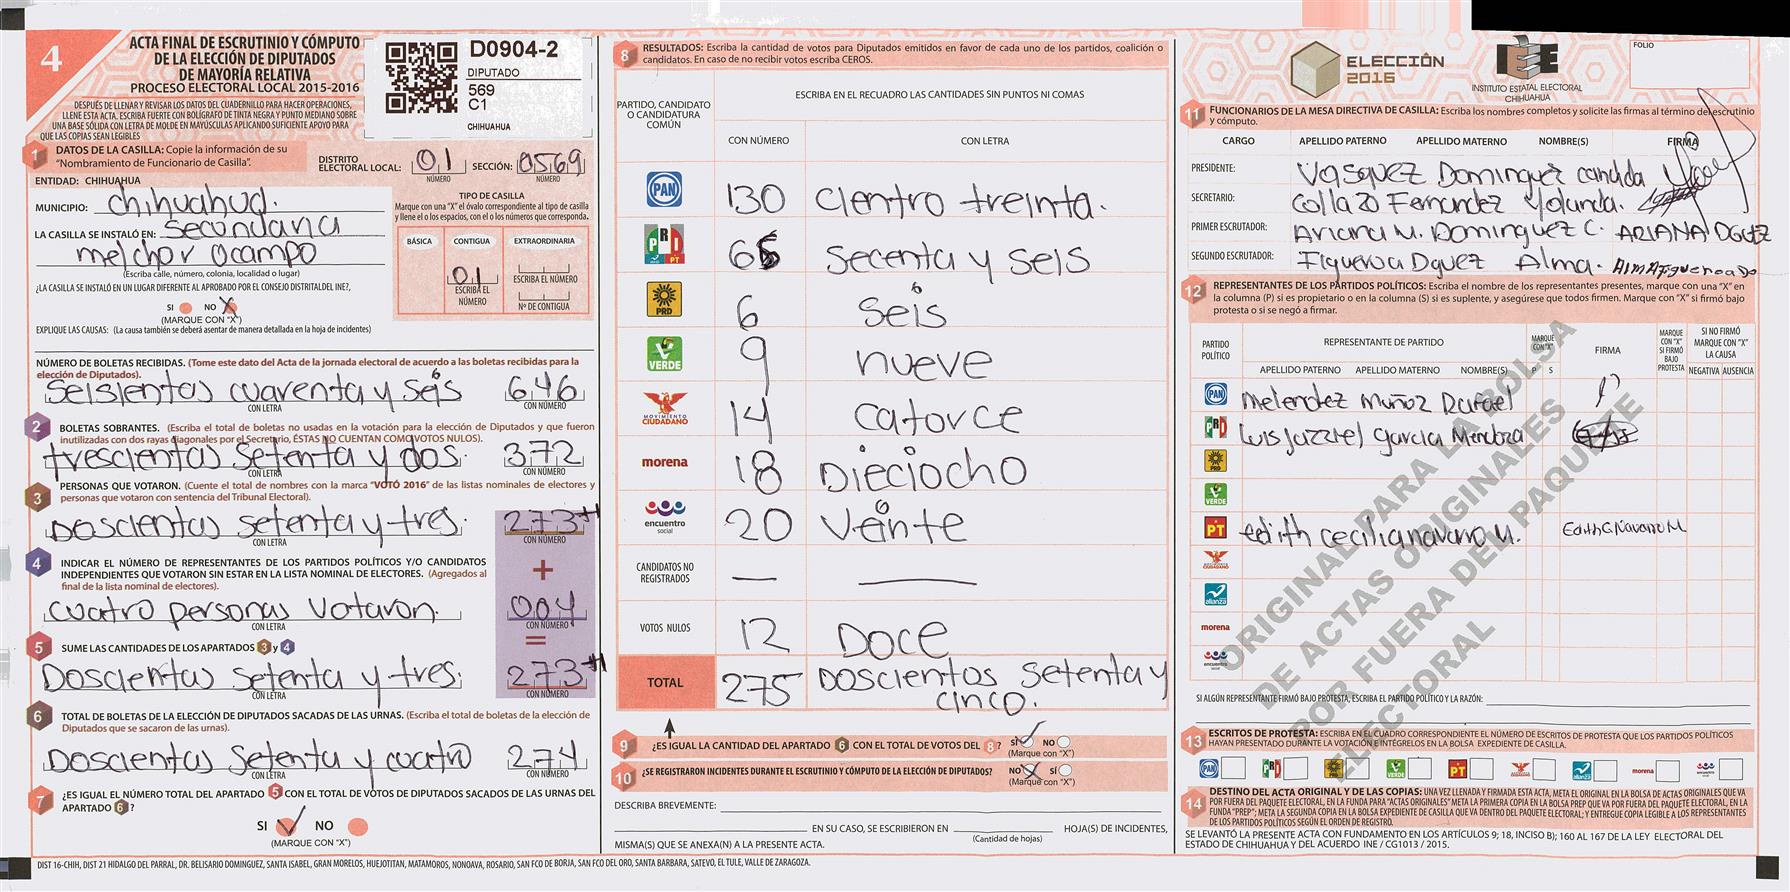 4
ACTA FINAL DE ESCRUTINIO Y CÓMPUTO
DE LA ELECCIÓN DE DIPUTADOS
DE MAYORÍA RELATIVA
PROCESO ELECTORAL LOCAL 2015-2016
DESPUÉS DE LLENAR Y REVISAR LOS DATOS DEL CUADERNILLO PARA HACER OPERACIONES,
LLENE ESTA ACTA. ESCRIBA FUERTE CON BOLÍGRAFO DE TINTA NEGRA Y PUNTO MEDIANO SOBRE
UNA BASE SÓLIDA CON LETRA DE MOLDE EN MAYÚSCULAS APLICANDO SUFICIENTE APOYO PARA
QUE LAS COPIAS SEAN LEGIBLES
D0904-2
DIPUTADO
569
C1
CHIHUAHUA
1 DATOS DE LA CASILLA: Copie la información de su
"Nombramiento de Funcionario de Casilla".
DISTRITO ELECTORAL LOCAL: 01 SECCIÓN: 0569
NÚMERO NÚMERO
ENTIDAD: CHIHUAHUA
MUNICIPIO: chihuahua.
LA CASILLA SE INSTALÓ EN: Secundaria
melchor Ocampo
(Escriba calle, número, colonia, localidad o lugar)
¿LA CASILLA SE INSTALÓ EN UN LUGAR DIFERENTE AL APROBADO POR EL CONSEJO DISTRITAL DEL INE?,
SI NO X
(MARQUE CON "X")
EXPLIQUE LAS CAUSAS: (La causa también se deberá asentar de manera detallada en la hoja de incidentes)
TIPO DE CASILLA
Marque con una "X" el óvalo correspondiente al tipo de casilla
y llene el o los espacios, con el o los números que corresponda.
BÁSICA CONTIGUA EXTRAORDINARIA
01
ESCRIBA EL NÚMERO ESCRIBA EL NÚMERO
Nº DE CONTIGUA
NÚMERO DE BOLETAS RECIBIDAS. (Tome este dato del Acta de la jornada electoral de acuerdo a las boletas recibidas para la
elección de Diputados).
Seisientas cuarenta y Seis 646
CON LETRA CON NÚMERO
2 BOLETAS SOBRANTES. (Escriba el total de boletas no usadas en la votación para la elección de Diputados y que fueron
inutilizadas con dos rayas diagonales por el Secretario, ÉSTAS NO CUENTAN COMO VOTOS NULOS).
trescientas Setenta y dos. 372
CON LETRA CON NÚMERO
3 PERSONAS QUE VOTARON. (Cuente el total de nombres con la marca "VOTÓ 2016" de las listas nominales de electores y
personas que votaron con sentencia del Tribunal Electoral).
Doscientas setenta y tres. 273+1
CON LETRA CON NÚMERO
+
4 INDICAR EL NÚMERO DE REPRESENTANTES DE LOS PARTIDOS POLÍTICOS Y/O CANDIDATOS
INDEPENDIENTES QUE VOTARON SIN ESTAR EN LA LISTA NOMINAL DE ELECTORES. (Agregados al
final de la lista nominal de electores).
Cuatro personas Votaron. 004
CON LETRA CON NÚMERO
=
5 SUME LAS CANTIDADES DE LOS APARTADOS 3 y 4
Doscientas setenta y tres. 273+1
CON LETRA CON NÚMERO
6 TOTAL DE BOLETAS DE LA ELECCIÓN DE DIPUTADOS SACADAS DE LAS URNAS. (Escriba el total de boletas de la elección de
Diputados que se sacaron de las urnas).
Doscientas Setenta y cuatro 274
CON LETRA CON NÚMERO
7 ¿ES IGUAL EL NÚMERO TOTAL DEL APARTADO 5 CON EL TOTAL DE VOTOS DE DIPUTADOS SACADOS DE LAS URNAS DEL
APARTADO 6?
SI NO
(MARQUE CON "X")
DIST 16-CHIH, DIST 21 HIDALGO DEL PARRAL, DR. BELISARIO DOMINGUEZ, SANTA ISABEL, GRAN MORELOS, HUEJOTITAN, MATAMOROS, NONOAVA, ROSARIO, SAN FCO DE BORJA, SAN FCO DEL ORO, SANTA BARBARA, SATEVO, EL TULE, VALLE DE ZARAGOZA.
8 RESULTADOS: Escriba la cantidad de votos para Diputados emitidos en favor de cada uno de los partidos, coalición o
candidatos. En caso de no recibir votos escriba CEROS.
PARTIDO, CANDIDATO O CANDIDATURA COMÚN
ESCRIBA EN EL RECUADRO LAS CANTIDADES SIN PUNTOS NI COMAS
CON NÚMERO CON LETRA
PAN 130 Cientro treinta.
PRI PT 66 Secenta y seis
PRD 6 Seis
VERDE 9 nueve
MOVIMIENTO CIUDADANO 14 Catorce
morena 18 Dieciocho
encuentro social 20 Veinte
CANDIDATOS NO REGISTRADOS — —
VOTOS NULOS 12 DOCE
TOTAL 275 Doscientos Setenta y
cinco.
9 ¿ES IGUAL LA CANTIDAD DEL APARTADO 6 CON EL TOTAL DE VOTOS DEL 8? SÍ NO
(Marque con "X")
10 ¿SE REGISTRARON INCIDENTES DURANTE EL ESCRUTINIO Y CÓMPUTO DE LA ELECCIÓN DE DIPUTADOS? NO X SÍ
(Marque con "X")
DESCRIBA BREVEMENTE:
EN SU CASO, SE ESCRIBIERON EN HOJA(S) DE INCIDENTES,
(Cantidad de hojas)
MISMA(S) QUE SE ANEXA(N) A LA PRESENTE ACTA.
ELECCIÓN
2016
IEE
INSTITUTO ESTATAL ELECTORAL
CHIHUAHUA
FOLIO
11 FUNCIONARIOS DE LA MESA DIRECTIVA DE CASILLA: Escriba los nombres completos y solicite las firmas al término del escrutinio
y cómputo.
CARGO APELLIDO PATERNO APELLIDO MATERNO NOMBRE(S) FIRMA
PRESIDENTE: Vasquez Dominguez candida
SECRETARIO: Collazo Fernandez Yolanda.
PRIMER ESCRUTADOR: Ariana M. Dominguez C. ARIANA DGUEZ
SEGUNDO ESCRUTADOR: Figueroa Dguez Alma. AlmaFigueroaDo
12 REPRESENTANTES DE LOS PARTIDOS POLÍTICOS: Escriba el nombre de los representantes presentes, marque con una "X" en
la columna (P) si es propietario o en la columna (S) si es suplente, y asegúrese que todos firmen. Marque con "X" si firmó bajo
protesta o si se negó a firmar.
PARTIDO POLÍTICO REPRESENTANTE DE PARTIDO MARQUE CON "X" FIRMA MARQUE CON "X" SI FIRMÓ BAJO PROTESTA SI NO FIRMÓ MARQUE CON "X" LA CAUSA
APELLIDO PATERNO APELLIDO MATERNO NOMBRE(S) P S NEGATIVA AUSENCIA
PAN melendez muñoz Rafael
PRI Luis Jazziel Garcia Mendoza
PRD
VERDE
PT edith cecilia navarro M. Edith C Navarro M
MOVIMIENTO CIUDADANO
alianza
morena
encuentro social
ORIGINAL PARA LA BOLSA
DE ACTAS ORIGINALES
POR FUERA DEL PAQUETE
ELECTORAL
SI ALGÚN REPRESENTANTE FIRMÓ BAJO PROTESTA, ESCRIBA EL PARTIDO POLÍTICO Y LA RAZÓN:
13 ESCRITOS DE PROTESTA: ESCRIBA EN EL CUADRO CORRESPONDIENTE EL NÚMERO DE ESCRITOS DE PROTESTA QUE LOS PARTIDOS POLÍTICOS
HAYAN PRESENTADO DURANTE LA VOTACIÓN E INTÉGRELOS EN LA BOLSA EXPEDIENTE DE CASILLA.
PAN PRI PRD VERDE PT alianza morena
14 DESTINO DEL ACTA ORIGINAL Y DE LAS COPIAS: UNA VEZ LLENADA Y FIRMADA ESTA ACTA, META EL ORIGINAL EN LA BOLSA DE ACTAS ORIGINALES QUE VA
POR FUERA DEL PAQUETE ELECTORAL, EN LA FUNDA PARA "ACTAS ORIGINALES" META LA PRIMERA COPIA EN LA BOLSA PREP QUE VA POR FUERA DEL PAQUETE ELECTORAL, EN LA
FUNDA "PREP"; META LA SEGUNDA COPIA EN LA BOLSA EXPEDIENTE DE CASILLA QUE VA DENTRO DEL PAQUETE ELECTORAL; Y ENTREGUE COPIA LEGIBLE A LOS REPRESENTANTES
DE LOS PARTIDOS POLÍTICOS SEGÚN EL ORDEN DE REGISTRO.
SE LEVANTÓ LA PRESENTE ACTA CON FUNDAMENTO EN LOS ARTÍCULOS 9; 18, INCISO B); 160 AL 167 DE LA LEY ELECTORAL DEL
ESTADO DE CHIHUAHUA Y DEL ACUERDO INE / CG1013 / 2015.